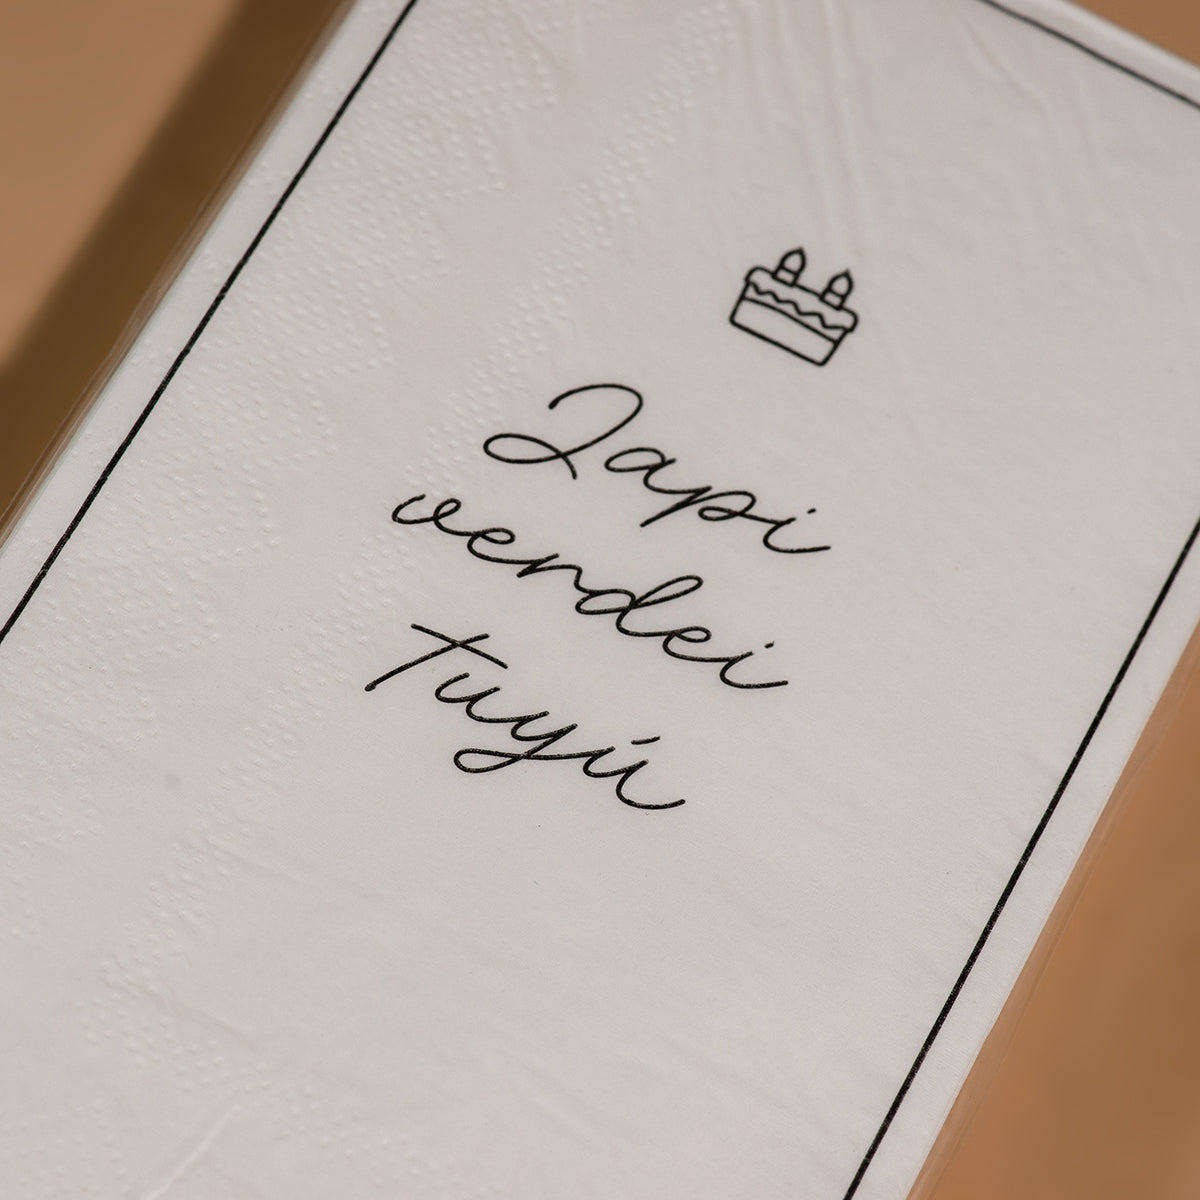 Japi
verdei
tuyú